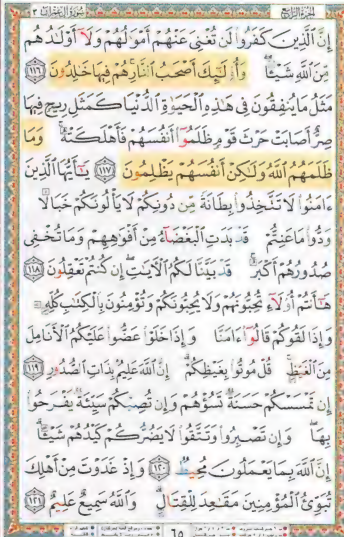 الجزء الرابع سورة آل عمران ٣
إِنَّ ٱلَّذِينَ كَفَرُواْ لَن تُغْنِىَ عَنْهُمْ أَمْوَٰلُهُمْ وَلَآ أَوْلَٰدُهُم
مِّنَ ٱللَّهِ شَيْـًٔا وَأُوْلَٰٓئِكَ أَصْحَٰبُ ٱلنَّارِ هُمْ فِيهَا خَٰلِدُونَ ١١٦
مَثَلُ مَا يُنفِقُونَ فِى هَٰذِهِ ٱلْحَيَوٰةِ ٱلدُّنْيَا كَمَثَلِ رِيحٍ فِيهَا
صِرٌّ أَصَابَتْ حَرْثَ قَوْمٍ ظَلَمُوٓاْ أَنفُسَهُمْ فَأَهْلَكَتْهُ وَمَا
ظَلَمَهُمُ ٱللَّهُ وَلَٰكِنْ أَنفُسَهُمْ يَظْلِمُونَ ١١٧ يَٰٓأَيُّهَا ٱلَّذِينَ
ءَامَنُواْ لَا تَتَّخِذُواْ بِطَانَةً مِّن دُونِكُمْ لَا يَأْلُونَكُمْ خَبَالًا
وَدُّواْ مَا عَنِتُّمْ قَدْ بَدَتِ ٱلْبَغْضَآءُ مِنْ أَفْوَٰهِهِمْ وَمَا تُخْفِى
صُدُورُهُمْ أَكْبَرُ قَدْ بَيَّنَّا لَكُمُ ٱلْءَايَٰتِ إِن كُنتُمْ تَعْقِلُونَ ١١٨
هَٰٓأَنتُمْ أُوْلَآءِ تُحِبُّونَهُمْ وَلَا يُحِبُّونَكُمْ وَتُؤْمِنُونَ بِٱلْكِتَٰبِ كُلِّهِۦ
وَإِذَا لَقُوكُمْ قَالُوٓاْ ءَامَنَّا وَإِذَا خَلَوْاْ عَضُّواْ عَلَيْكُمُ ٱلْأَنَامِلَ
مِنَ ٱلْغَيْظِ قُلْ مُوتُواْ بِغَيْظِكُمْ إِنَّ ٱللَّهَ عَلِيمٌۢ بِذَاتِ ٱلصُّدُورِ ١١٩
إِن تَمْسَسْكُمْ حَسَنَةٌ تَسُؤْهُمْ وَإِن تُصِبْكُمْ سَيِّئَةٌ يَفْرَحُواْ
بِهَا وَإِن تَصْبِرُواْ وَتَتَّقُواْ لَا يَضُرُّكُمْ كَيْدُهُمْ شَيْـًٔا
إِنَّ ٱللَّهَ بِمَا يَعْمَلُونَ مُحِيطٌ ١٢٠ وَإِذْ غَدَوْتَ مِنْ أَهْلِكَ
تُبَوِّئُ ٱلْمُؤْمِنِينَ مَقَٰعِدَ لِلْقِتَالِ وَٱللَّهُ سَمِيعٌ عَلِيمٌ ١٢١
٦٥